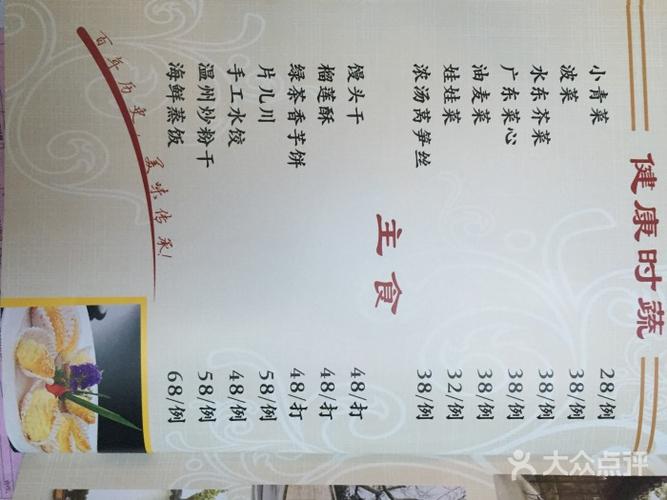 健康时蔬
小青菜 28/例
菠菜 38/例
水东芥菜 38/例
广东菜心 38/例
油麦菜 38/例
娃娃菜 32/例
浓汤莴笋丝 38/例
主食
馒头干 48/打
榴莲酥 48/打
绿茶香芋饼 48/打
片儿川 58/例
手工水饺 48/例
温州炒粉干 58/例
海鲜蒸饭 68/例
百年历史，美味传承!
大众点评